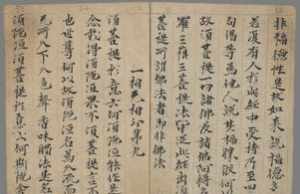 非福德性是故如來說福德多
若復有人於此經中受持乃至四
句偈等為他人說其福勝彼何以
故須菩提一切諸佛及諸佛阿耨多
羅三藐三菩提法皆從此經出須
菩提所謂佛法者即非佛法
一相无相分第九
須菩提於意云何須陀洹能作是
念我得須陀洹果不須菩提言不
也世尊何以故須陀洹名為入流而
无所入不入色聲香味觸法是名
須陀洹須菩提於意云何斯陀含